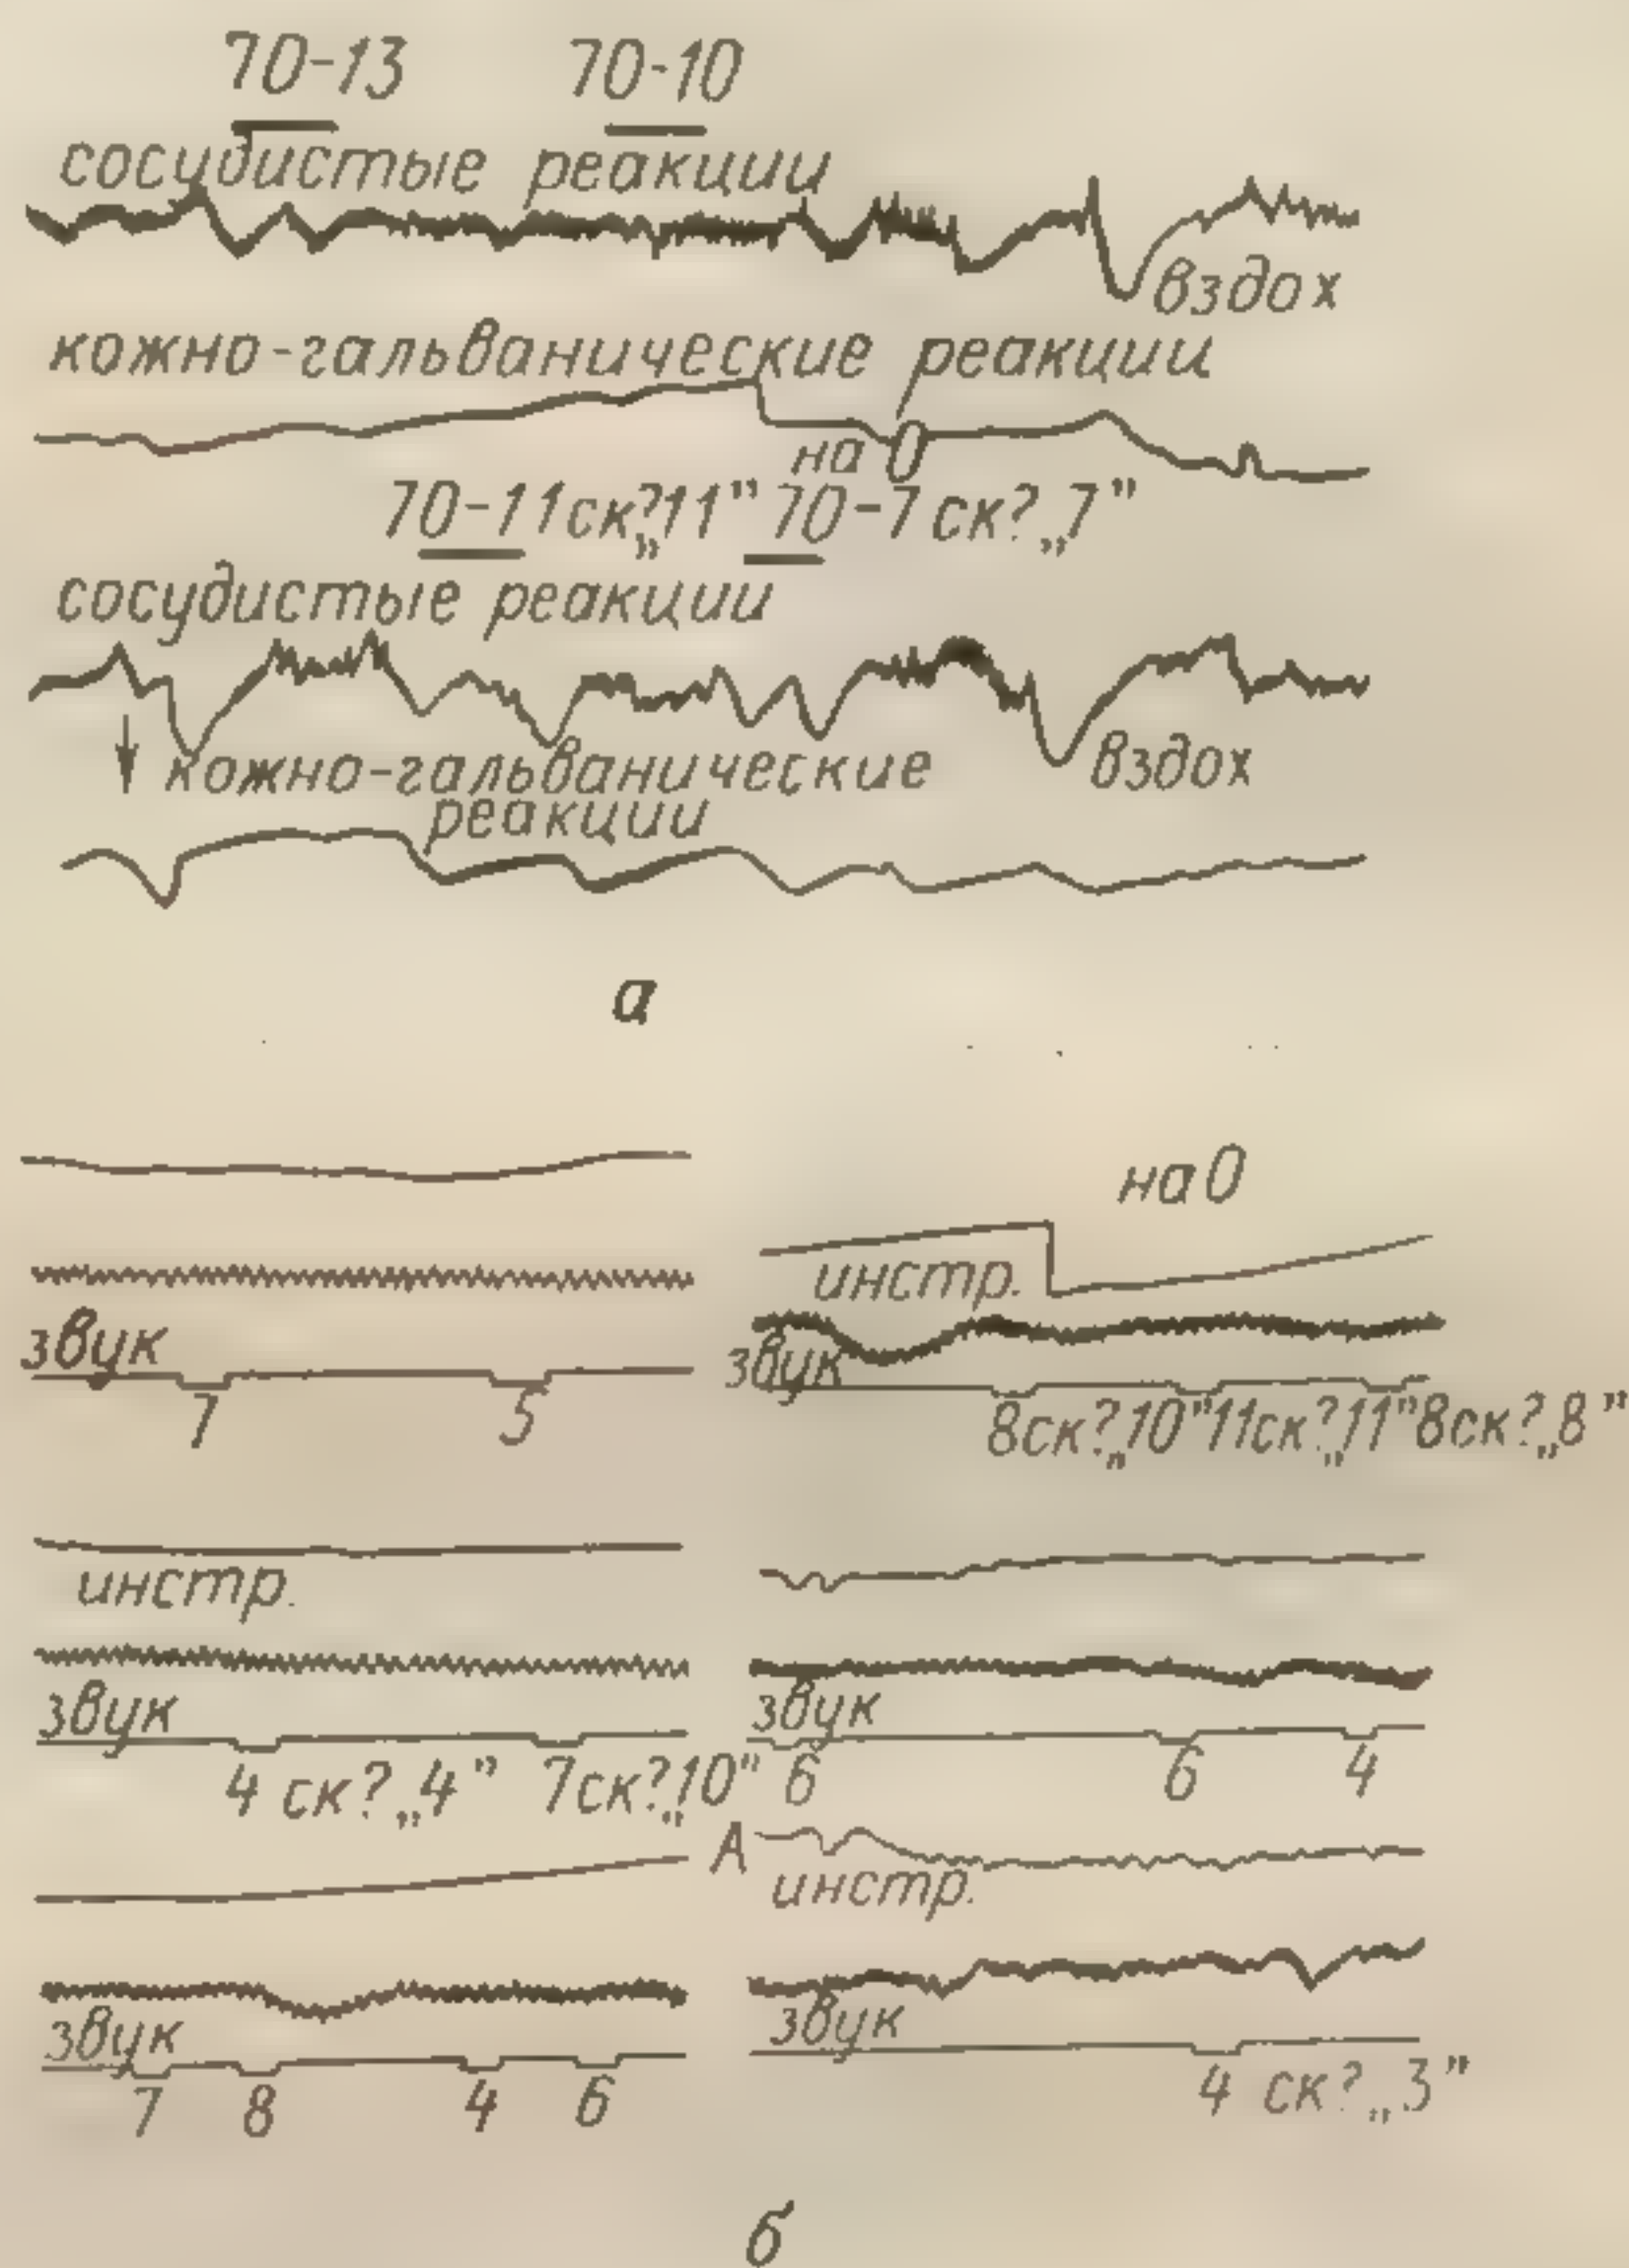 70-13 70-10
сосудистые реакции
вздох
кожно-гальванические реакции
на 0
70-11 ск? „11” 70-7 ск? „7”
сосудистые реакции
вздох
кожно-гальванические
реакции
а
на 0
инстр.
звук
7 5
звук
8 ск? „10” 11 ск? „11” 8 ск? „8”
инстр.
звук
4 ск? „4” 7 ск? „10”
звук
6 6 4
звук
7 8 4 6
А
инстр.
звук
4 ск? „3”
б